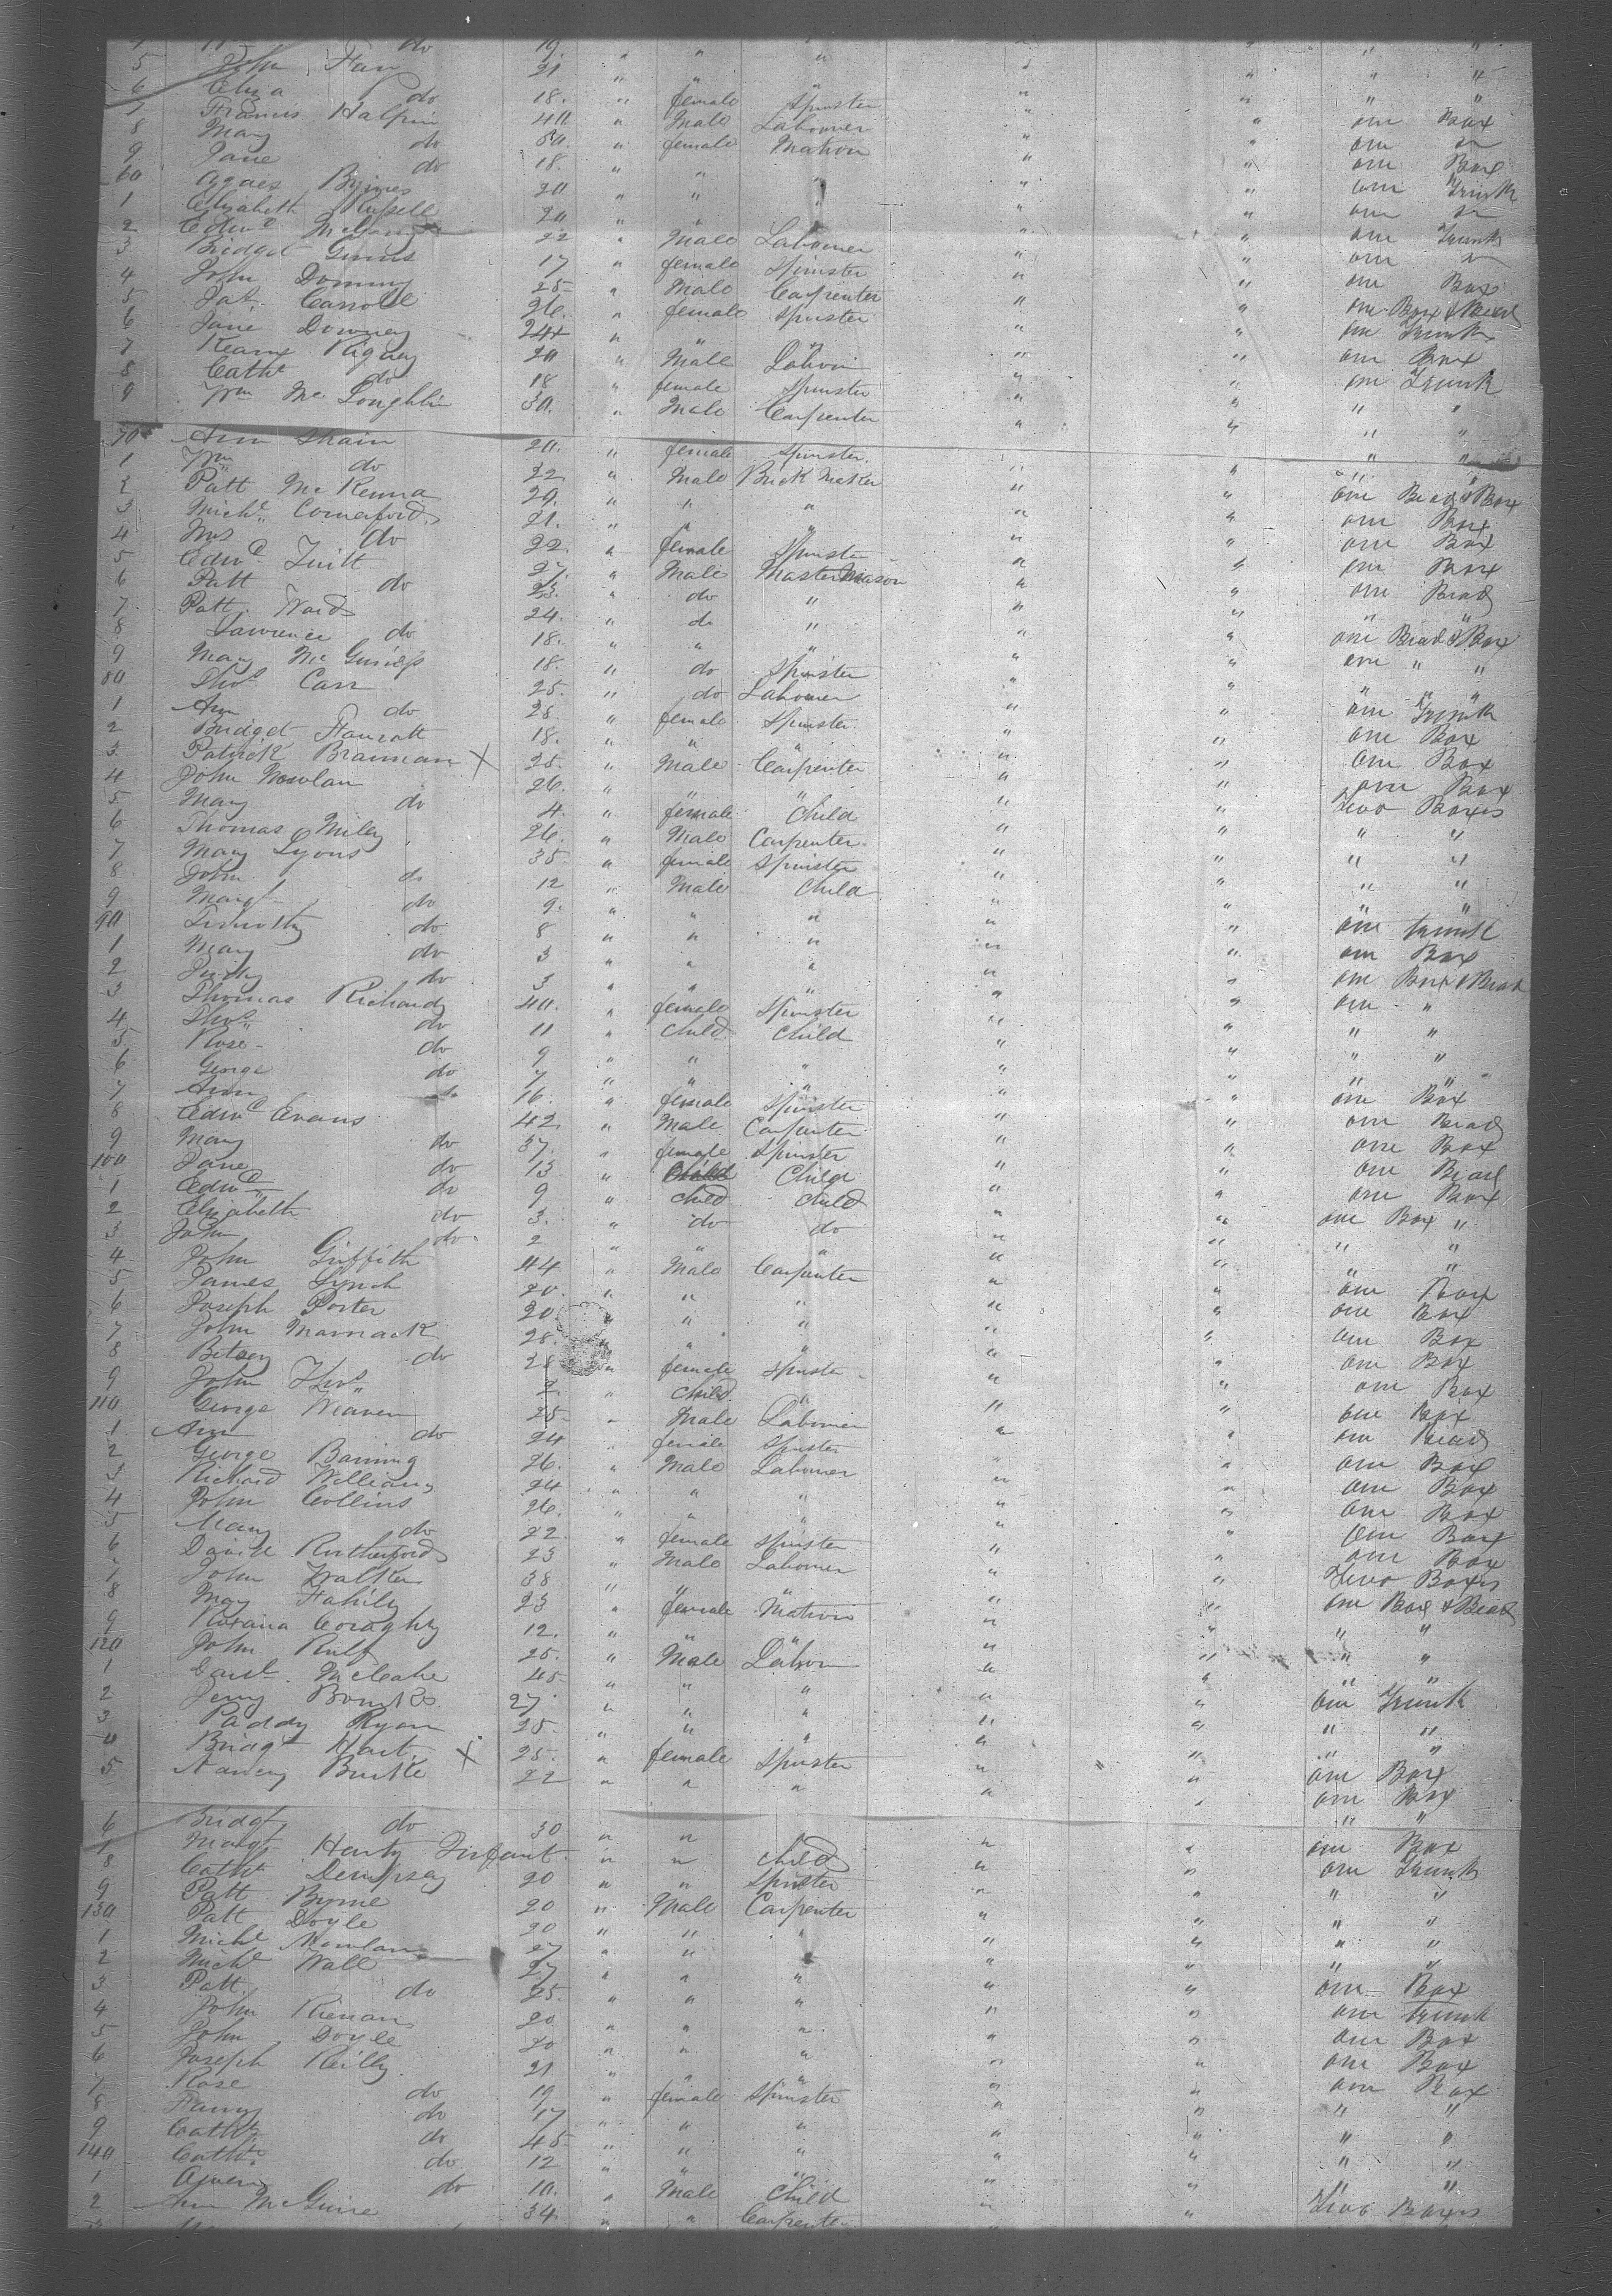 do 19. " " "
5 John Farr 21 " " " " " " "
6 Eliza do 18. " female Spinster " " " "
7 Francis Halpin 40 " Male Labourer " " one Box
8 Mary do 50. " female Matron " " one "
9 Jane do 18. " " " " " one Box
60 Agnes Byrnes 20 " " " " " one Trunk
1 Elizabeth Russell 20 " " " " " one "
2 Edwd 22 " Male Labourer " " one Trunk
3 Bridget 17 " female Spinster " " one "
4 John 25 " Male Carpenter " " one Box
5 Pat Carroll 26. " female Spinster " " one Box & Bead
6 Jane Downey 24 " " " " " one Trunk
7 Rigney 20 " Male Labour " " one Box
8 Catht do 18 " female Spinster " " one Trunk
9 Wm Mc Loughlin 30. " Male Carpenter " " " "
70 Ann 20. " female Spinster. " " " "
1 Wm do 22 " Male Brick Maker " " " "
2 Patt McKenna 29. " " " " " one Bead & Box
3 Michl Comerford 21. " " " " " one Box
4 Mrs do 22. " female Spinster " " one Box
5 Edwd 27. " Male Master Mason " " one Box
6 Patt do 23. " do " " " one Bead
7 Patt Ward 24. " do " " " " "
8 Lawrence do 18. " " " " one Bead & Box
9 Mary McGuiness 18. " do Spinster " " one " "
80 Thos Carr 25. " do Labourer " " " " "
1 Ann do 28. " female Spinster " " one Trunk
2 Bridget 18. " " " " " one Box
3 Patrick Brannan X 25. " Male Carpenter " " one Box
4 John Nowlan 26. " " " " " one Box
5 Mary do 4. " female Child " " Two Boxes
6 Thomas Miley 26. " Male Carpenter " " " "
7 Mary Lyons 35 " female Spinster " " " "
8 John do 12 " Male Child " " " "
9 Margt do 9. " " " " " " "
90 Timothy do 8 " " " " " one trunk
1 Mary do 3 " " " " " one Box
2 do 3 " " " " " one Box & Bead
3 Thomas Richards 40. " female Spinster " " one "
4 Thos do 11 " child Child " " " "
5 Rose do 9 " " " " " " "
6 George do 7 " " " " " " "
7 Ann do 16. " female Spinster " " one Box
8 Edwd Evans 42 " Male Carpenter " " one Bead
9 Mary do 37. " female Spinster " " one Box
100 Jane do 13 " Child " " one Bead
1 Edwd do 9 " child child " " one Box
2 Elizabeth do 3. " do do " " one Box "
3 John do 2 " " " " " " "
4 John Griffith 44 " Male Carpenter " " " "
5 James Lynch 20. " " " " " one Box
6 Joseph Porter 20 " " " " " one Box
7 John 28. " " " " " one Box
8 Betsey do 28 " female Spinster " " one Box
9 John Thos 2. " Child. " " " one Box
110 George Weaver 25 " Male Labourer " " one Box
1 Ann do 24 " female Spinster " " one Bead
2 George Banning 26. " Male Labourer " " one Box
3 Richard Williams 24 " " " " " one Box
4 John Collins 26. " " " " " one Box
5 Mary do 22. " female Spinster " " one Box
6 David Rutherford 23 " Male Labourer " " one Box
7 John Walker 38 " " " " " Two Boxes
8 May Fahily 23 " female Matron " " one Box & Bead
9 Roxana 12. " " " " " " "
120 John 25. " Male Labour " " " "
1 McCabe 45 " " " " " " "
2 27. " " " " " one Trunk
3 Paddy Ryan 25. " " " " " " "
4 Bridgt Hart X 25. " female Spinster " " " "
5 Nancy Burke 22 " " " " " one Box
one Box
6 Bridgt do 30 " " " " " "
7 Margt Harty Infant " " child " " one Box
8 Catht Dempsey 20 " " Spinster " " one Trunk
9 Patt Byrne 20 " Male Carpenter " " " "
130 Patt Doyle 20 " " " " " " "
1 Michl Nowlan 27 " " " " " " "
2 Michl Wall 27 " " " " " " "
3 Patt do 25. " " " " " one Box
4 John Kienan 20 " " " " " one trunk
5 John Doyle 20 " " " " " one Box
6 Joseph Reilly 21 " " " " " one Box
7 Rose do 19 " female Spinster " " one Box
8 Fanny do 17 " " " " " " "
9 Catht do 45 " " " " " " "
140 Catht do 12 " " " " " " "
1 do 10. " Male Child " " " "
2 Ann McGuire 34. " " Carpenter " " Two Boxes